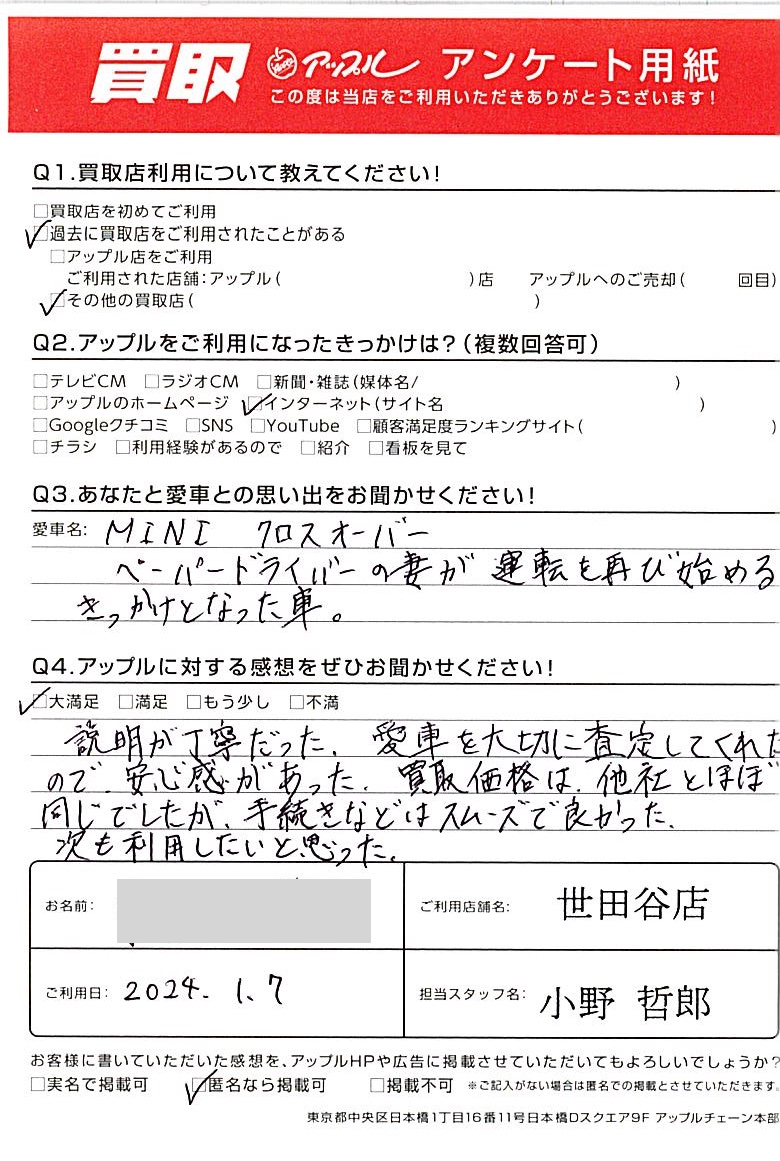 買取 アップル アンケート用紙
この度は当店をご利用いただきありがとうございます！
Q1.買取店利用について教えてください！
□買取店を初めてご利用
☑過去に買取店をご利用されたことがある
□アップル店をご利用
ご利用された店舗：アップル（ ）店 アップルへのご売却（ 回目）
☑その他の買取店（ ）
Q2.アップルをご利用になったきっかけは？（複数回答可）
□テレビCM □ラジオCM □新聞・雑誌（媒体名/ ）
□アップルのホームページ ☑インターネット（サイト名 ）
□Googleクチコミ □SNS □YouTube □顧客満足度ランキングサイト（ ）
□チラシ □利用経験があるので □紹介 □看板を見て
Q3.あなたと愛車との思い出をお聞かせください！
愛車名： MINI クロスオーバー
ペーパードライバーの妻が運転を再び始める
きっかけとなった車。
Q4.アップルに対する感想をぜひお聞かせください！
☑大満足 □満足 □もう少し □不満
説明が丁寧だった、愛車を大切に査定してくれた
ので、安心感があった、買取価格は、他社とほぼ
同じでしたが、手続きなどはスムーズで良かった、
次も利用したいと思った、
お名前： ご利用店舗名： 世田谷店
ご利用日： 2024. 1. 7 担当スタッフ名： 小野 哲郎
お客様に書いていただいた感想を、アップルHPや広告に掲載させていただいてもよろしいでしょうか？
□実名で掲載可 ☑匿名なら掲載可 □掲載不可 ※ご記入がない場合は匿名での掲載とさせていただきます。
東京都中央区日本橋1丁目16番11号日本橋Dスクエア9F アップルチェーン本部